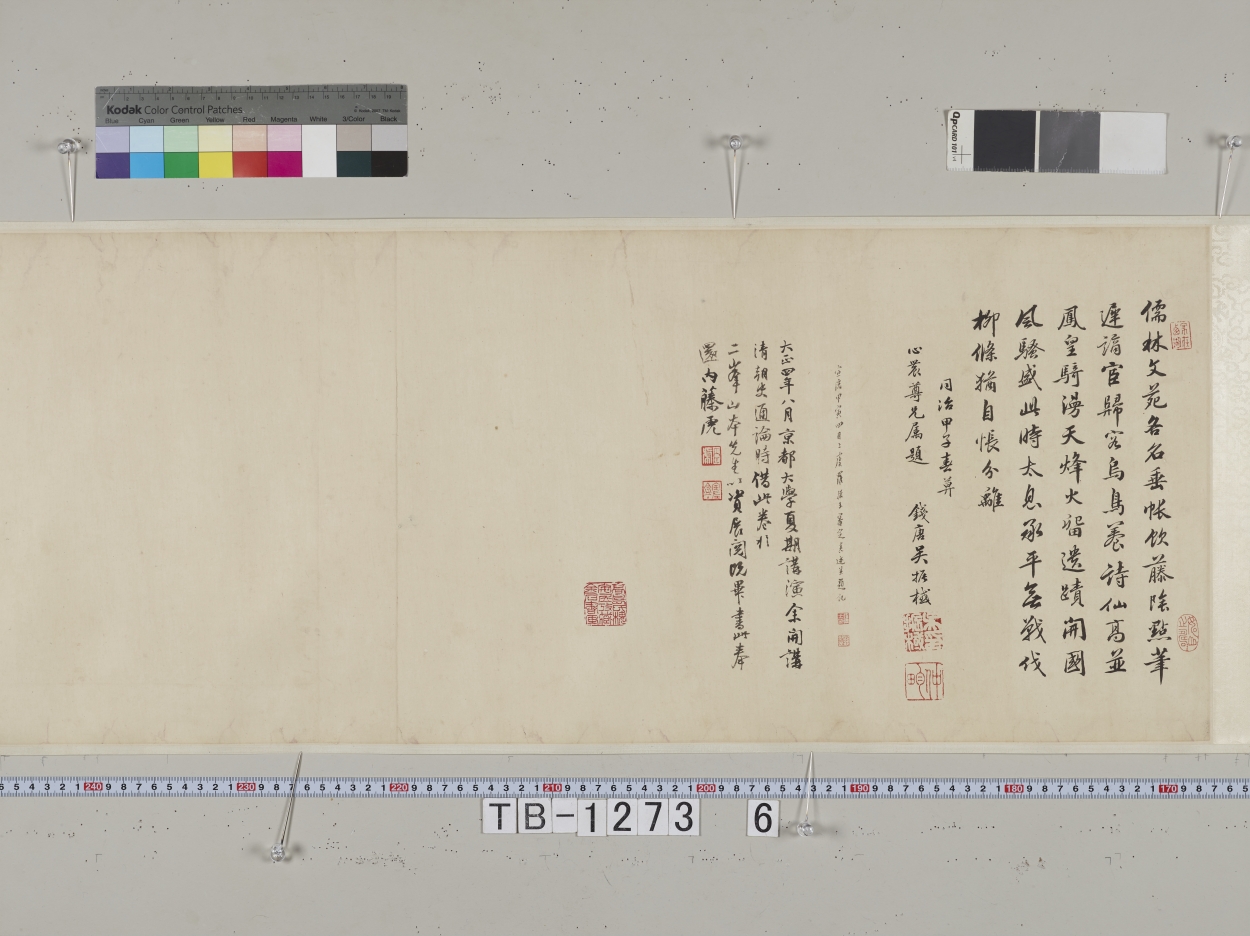 儒林文苑各名垂帳飲藤陰點筆
遲謫宦歸客烏鳥養詩仙高並
鳳皇騎漫天烽火留遺蹟開國
風騷盛此時太息承平無戰伐
柳條猶自悵分離
同治甲子春莫
心農尊兄屬題
錢唐吳振棫
大正四年八月京都大學夏期講演余開講
清朝史通論時借此卷於
二峯山本先生以資展閱既畢書此奉
還內藤虎
Kodak Color Control Patches
Blue Cyan Green Yellow Red Magenta White 3/Color Black
QPCARD 101
240 230 220 210 200 190 180 170
TB-1273 6